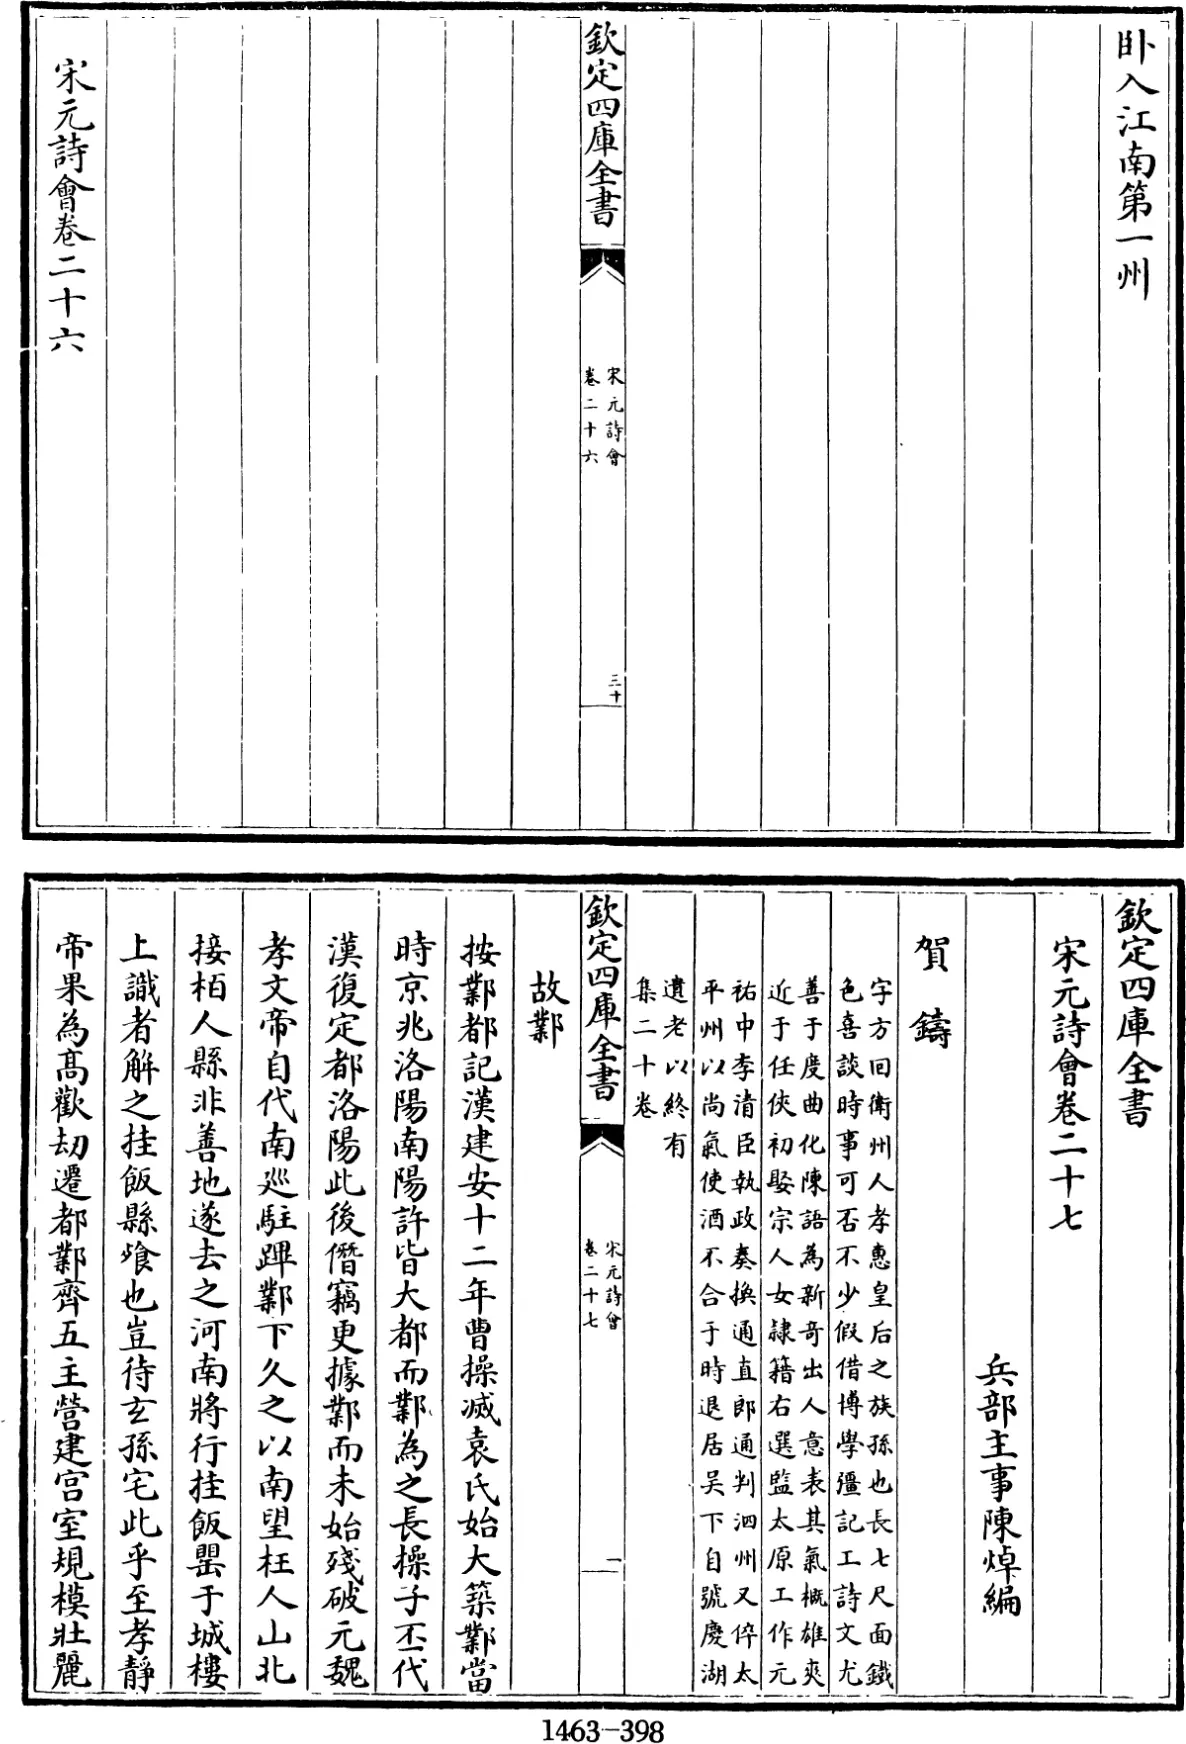 卧入江南第一州
欽定四庫全書
宋元詩會
卷二十六
三十
宋元詩會卷二十六
欽定四庫全書
宋元詩會卷二十七
兵部主事陳焯編
賀鑄
字方回衛州人孝惠皇后之族孫也長七尺面鐵
色喜談時事可否不少假借博學彊記工詩文尤
善于度曲化陳語為新奇出人意表其氣概雄爽
近于任俠初娶宗人女隷籍右選監太原工作元
祐中李清臣執政奏換通直郎通判泗州又倅太
平州以尚氣使酒不合于時退居吴下自號慶湖
遺老以終有
集二十卷
欽定四庫全書
宋元詩會
卷二十七
一
故鄴
按鄴都記漢建安十二年曹操滅袁氏始大築鄴當
時京兆洛陽南陽許皆大都而鄴為之長操子丕代
漢復定都洛陽此後僭竊更據鄴而未始殘破元魏
孝文帝自代南廵駐蹕鄴下久之以南望枉人山北
接栢人縣非善地遂去之河南將行挂飯罌于城樓
上識者解之挂飯縣飡也豈待玄孫宅此乎至孝靜
帝果為髙歡刧遷都鄴齊五主營建宫室規模壯麗
1463-398